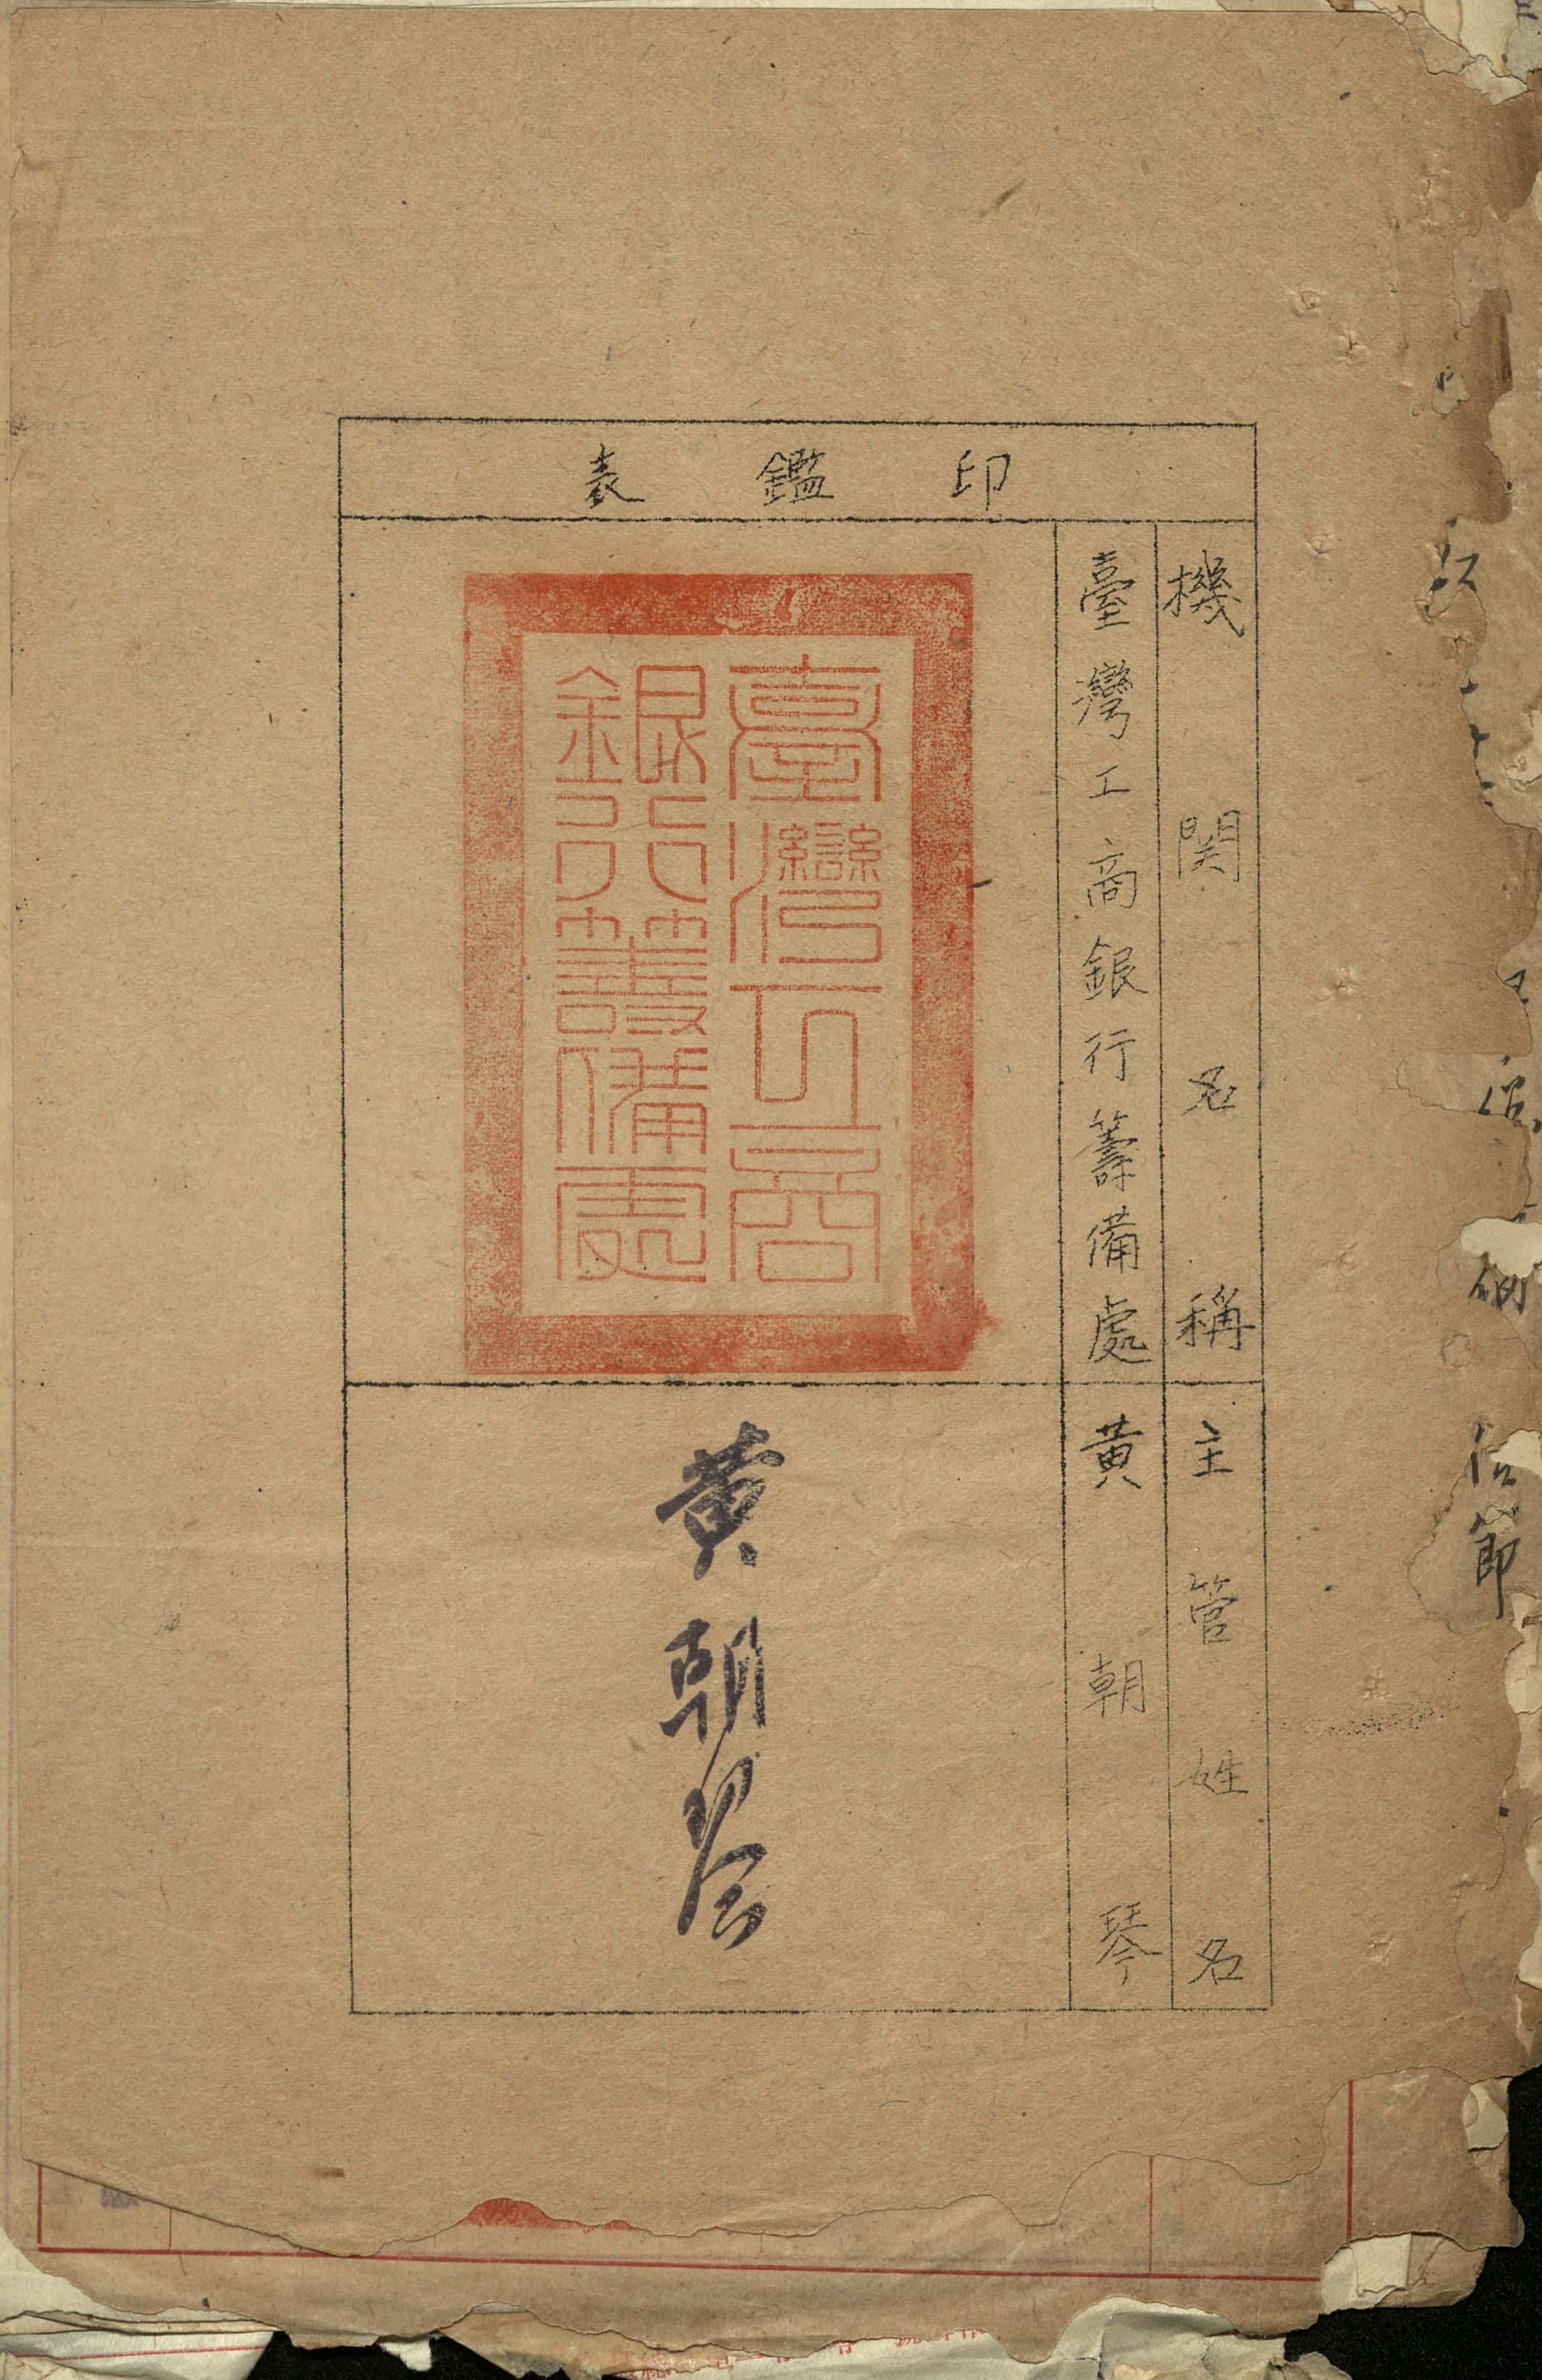 印鑑表
機関名稱
臺灣工商銀行籌備處
臺灣工商
銀行籌備處
主管姓名
黃朝琴
黃朝琴
節